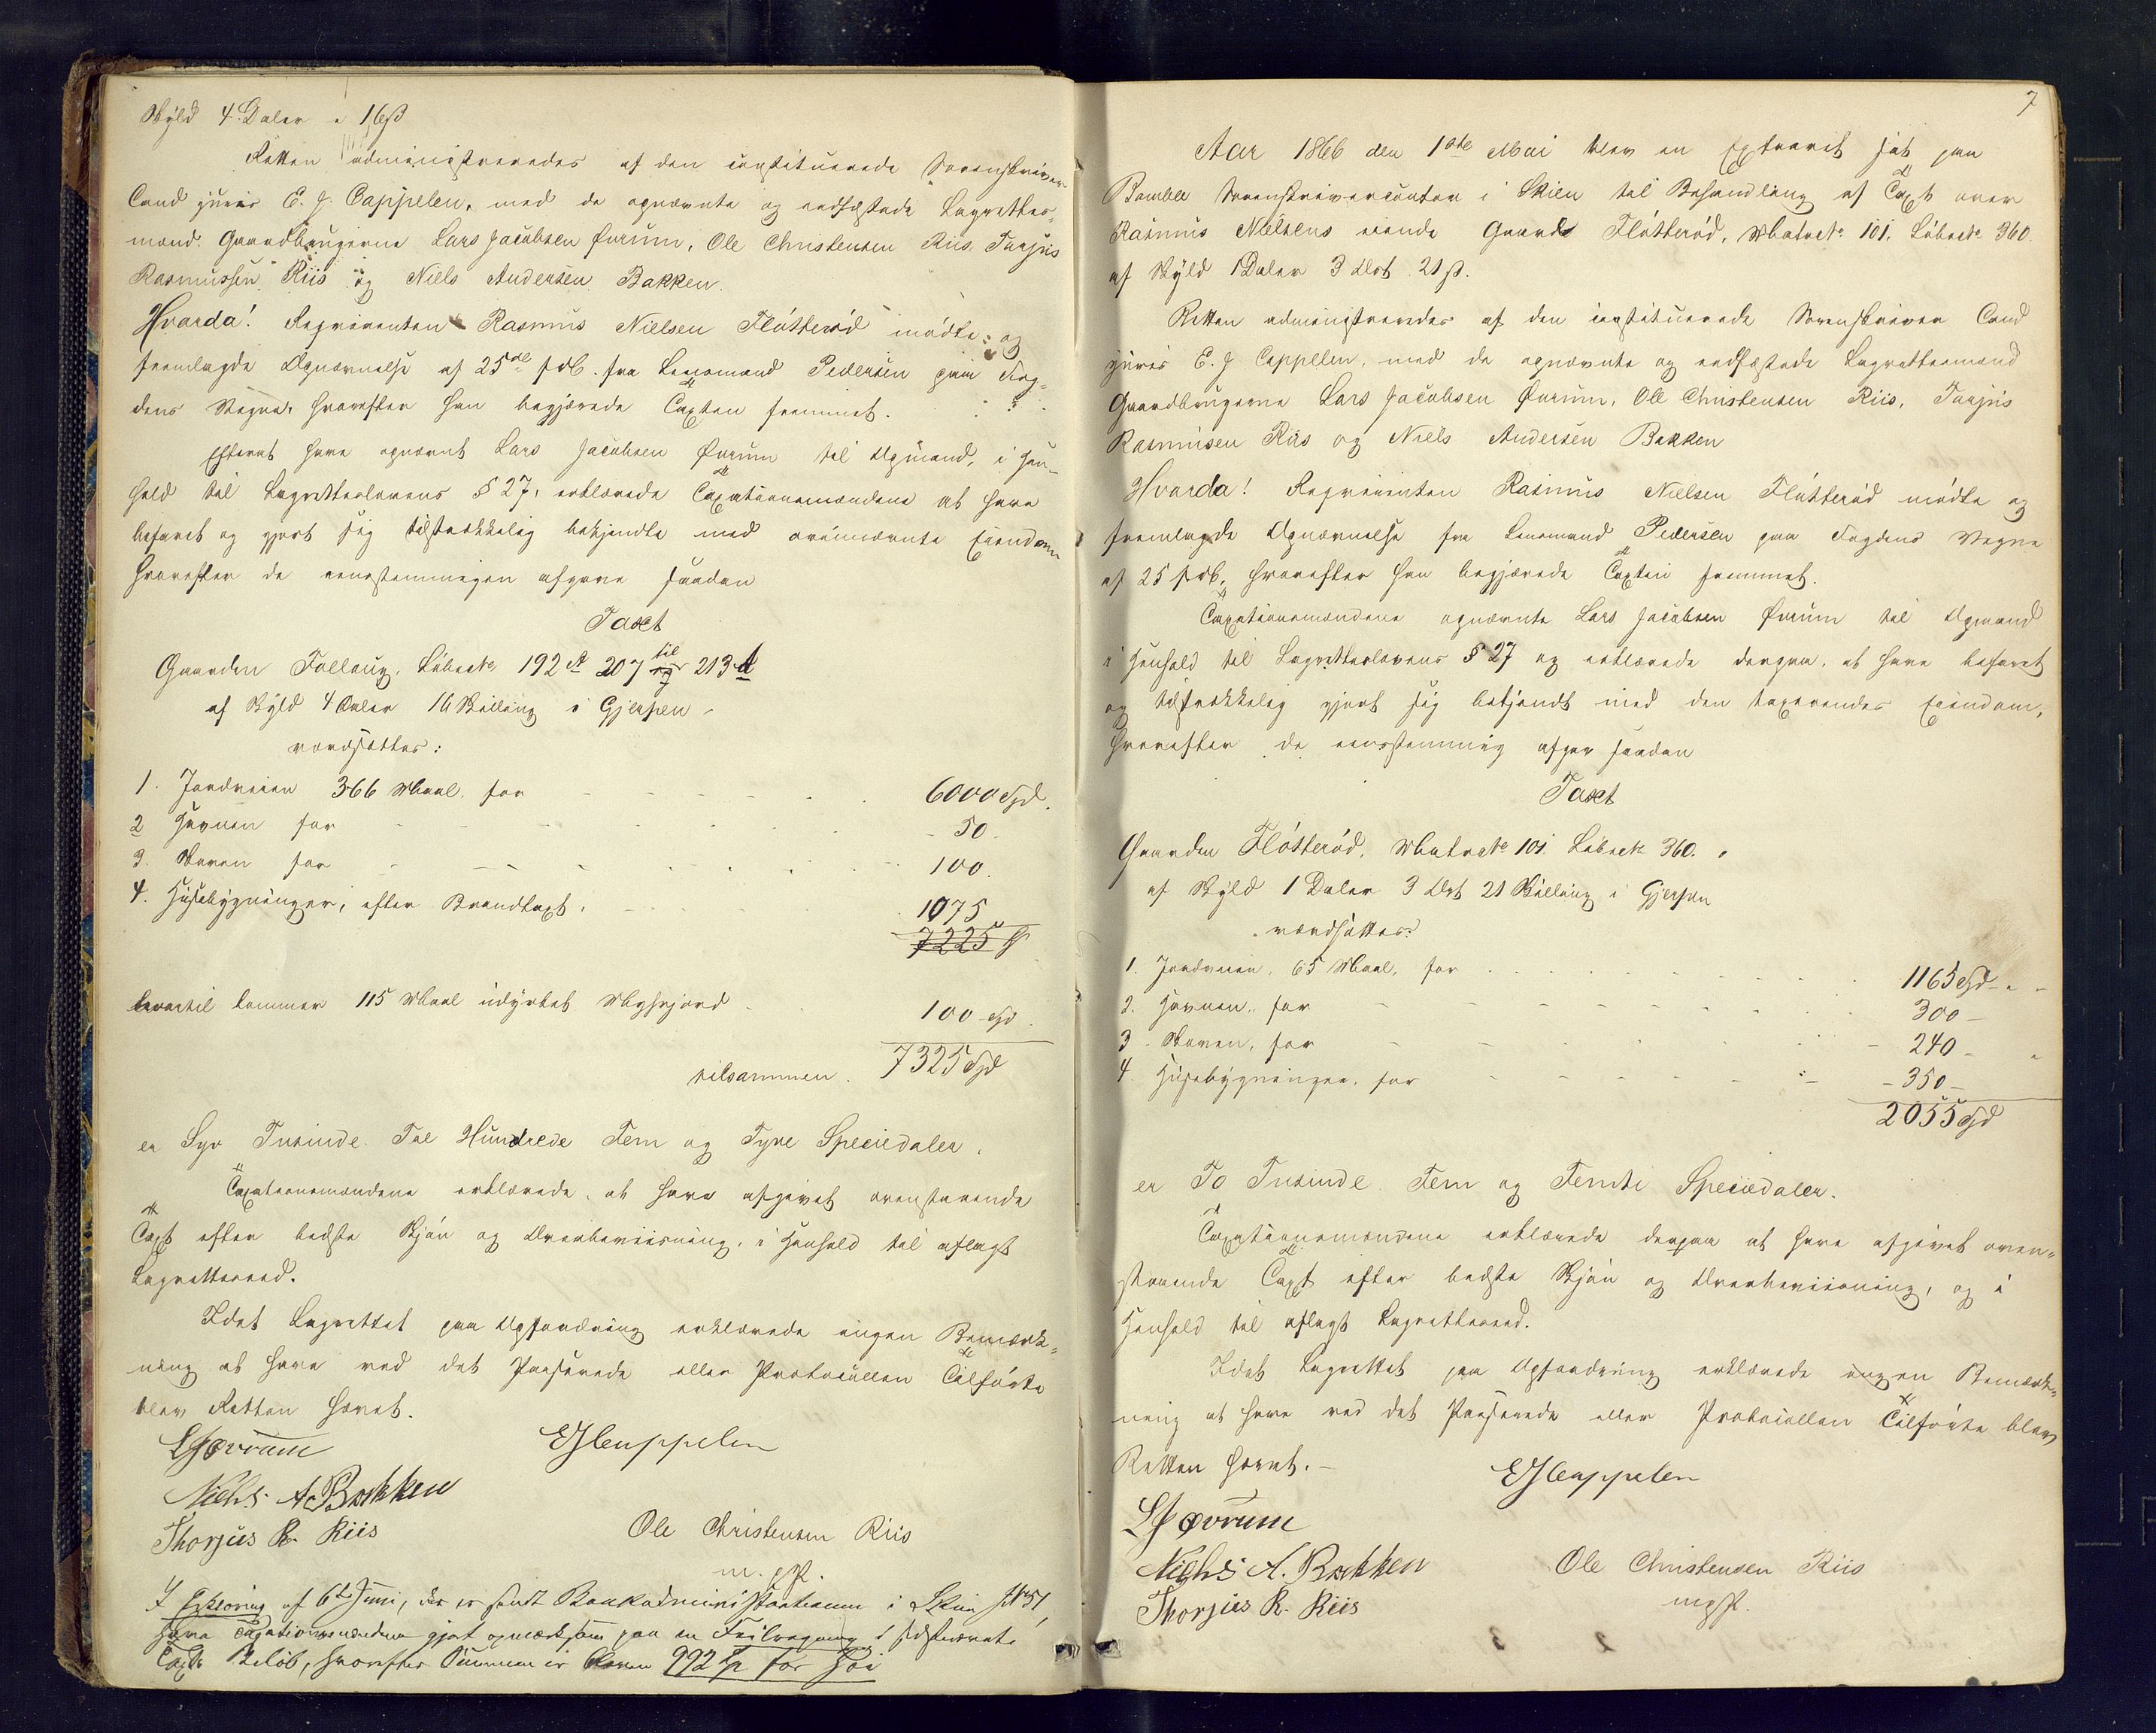 Skyld 4 Daler " 16 ß
Retten administreredes af den constituerede Sorenskriver
Cand juris E. J. Cappelen, med de opnævnte og eedfæstede Lagrettes-
mænd. Gaardbrugerne Lars Jacobsen Øvrum, Ole Christensen Riis, Tarjus
Rasmussen Riis og Niels Andersen Bakken.
Hvorda! Reqvirenten Rasmus Nielsen Fløtterød mødte og
fremlagde Opnævnelse af 25de febr. fra Lensmand Pedersen paa Fog-
dens Vegne, hvorefter han begjærede Taxten fremmet.
Efterat have opnævnt Lars Jacobsen Øvrum til Opmand, i Hen-
hold til Lagretteslovens § 27, erklærede Taxationsmændene at have
befaret og gjort sig tilstrækkelig bekjendte med ovennævnte Eiendom
hvorefter de eenstemmigen afgave saadan
Taxt
Gaarden Follaug, Løbeno 192 A 207 til 213 A
af Skyld 4 Daler 16 Skilling i Gjerpen
værdsættes:
1. Jordveien 366 Maal for 6000 Spd.
2 Havnen for 50.
3. Skoven for 100.
4. Husebygninger, efter Brandtaxt, 1075
7225
hvortil kommer 115 Maal udyrket Myhrjord 100 Spd
tilsammen. 7325 Spd
er Syv Tusinde Tre Hundrede Fem og Tyve Speciedaler.
Taxationsmændene erklærede, at have afgivet ovenstaaende
Taxt efter bedste Skjøn og Overbeviisning, i Henhold til aflagt
Lagretteseed.
Idet Lagrettet paa Opfordring erklærede ingen Bemærk-
ning at have ved det Passerede eller Protocollen Tilførte
blev Retten hævet.
LJØvrum EJCappelen
Niehls A. Bakken
Thorjus R. Riis Ole Christensen Riis
m. p. P.
I Erklæring af 6te Juni, der er sendt Bankadministrationen i Skien
have Taxationsmændene gjort opmærksom paa en Feiltagning i sidstnævnte
Taxts Beløb, hvorefter Summen er bleven 992 Sp for høi
7
Aar 1866 den 1ste Mai blev en Extraret sat paa
Bamble Sorenskrivercontor i Skien til Behandling af Taxt over
Rasmus Nielsens eiende Gaard Fløtterød, Matrno 101, Løbeno 360.
af Skyld 1 Daler 3 Ort 21 ß.
Retten administreredes af den constituerede Sorenskriver Cand
juris E. J Cappelen, med de opnævnte og eedfæstede Lagrettesmænd
Gaardbrugerne Lars Jacobsen Øvrum, Ole Christensen Riis, Tarjus
Rasmusen Riis og Niels Andersen Bakken
Hvorda! Reqvirenten Rasmus Nielsen Fløtterød mødte og
fremlagde Opnævnelse fra Lensmand Pedersen paa Fogdens Vegne
af 25 febr., hvorefter han begjærede Taxten fremmet.
Taxationsmændene opnævnte Lars Jacobsen Øvrum til Opmand
i Henhold til Lagretteslovens § 27 og erklærede derpaa, at have befaret
og tilstrækkelig gjort sig bekjendt med den taxerendes Eiendom,
hvorefter de eenstemmig afgav saadan
Taxt
Gaarden Fløtterød, Matrno 101 Løbeno 360.
af Skyld 1 Daler 3 Ort 21 Skilling i Gjerpen
værdsættes:
1. Jordveien, 65 Maal, for 1165 Spd
2. Havnen, for 300
3 Skoven, for 240
4 Husebygninger, for 350
2055 Spd
er To Tusinde Fem og Femti Speciedaler.
Taxationsmændene erklærede derpaa at have afgivet oven-
staaende Taxt efter bedste Skjøn og Overbeviisning, og i
Henhold til aflagt Lagretteseed.
Idet Lagrettet paa Opfordring erklærede ingen Bemærk-
ning at have ved det Passerede eller Protocollen Tilførte blev
Retten hævet. –
EJCappelen
LJ Øvrum
Niehls A. Bakken Ole Christensen Riis
Thorjus R. Riis mpP.